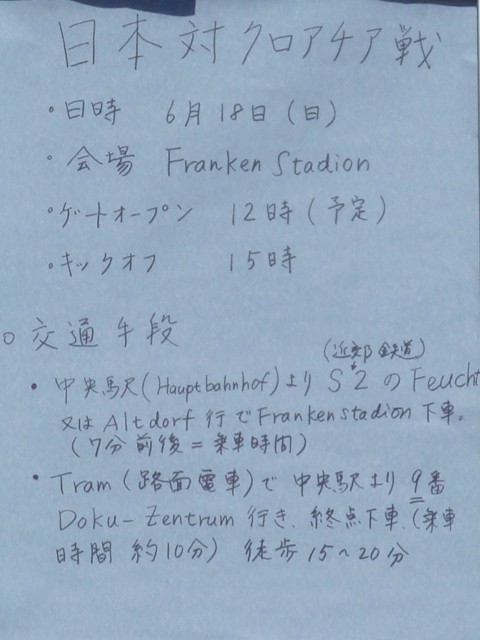 日本対クロアチア戦
・日時 6月18日(日)
・会場 Franken Stadion
・ゲートオープン 12時(予定)
・キックオフ 15時
○交通手段
(近郊鉄道)
・中央駅(Hauptbahnhof)より S2 の Feucht
又は Altdorf 行で Frankenstadion 下車。
(7分前後=乗車時間)
・Tram(路面電車)で 中央駅より 9番
Doku-Zentrum 行き、終点下車.(乗車
時間 約10分) 徒歩15~20分